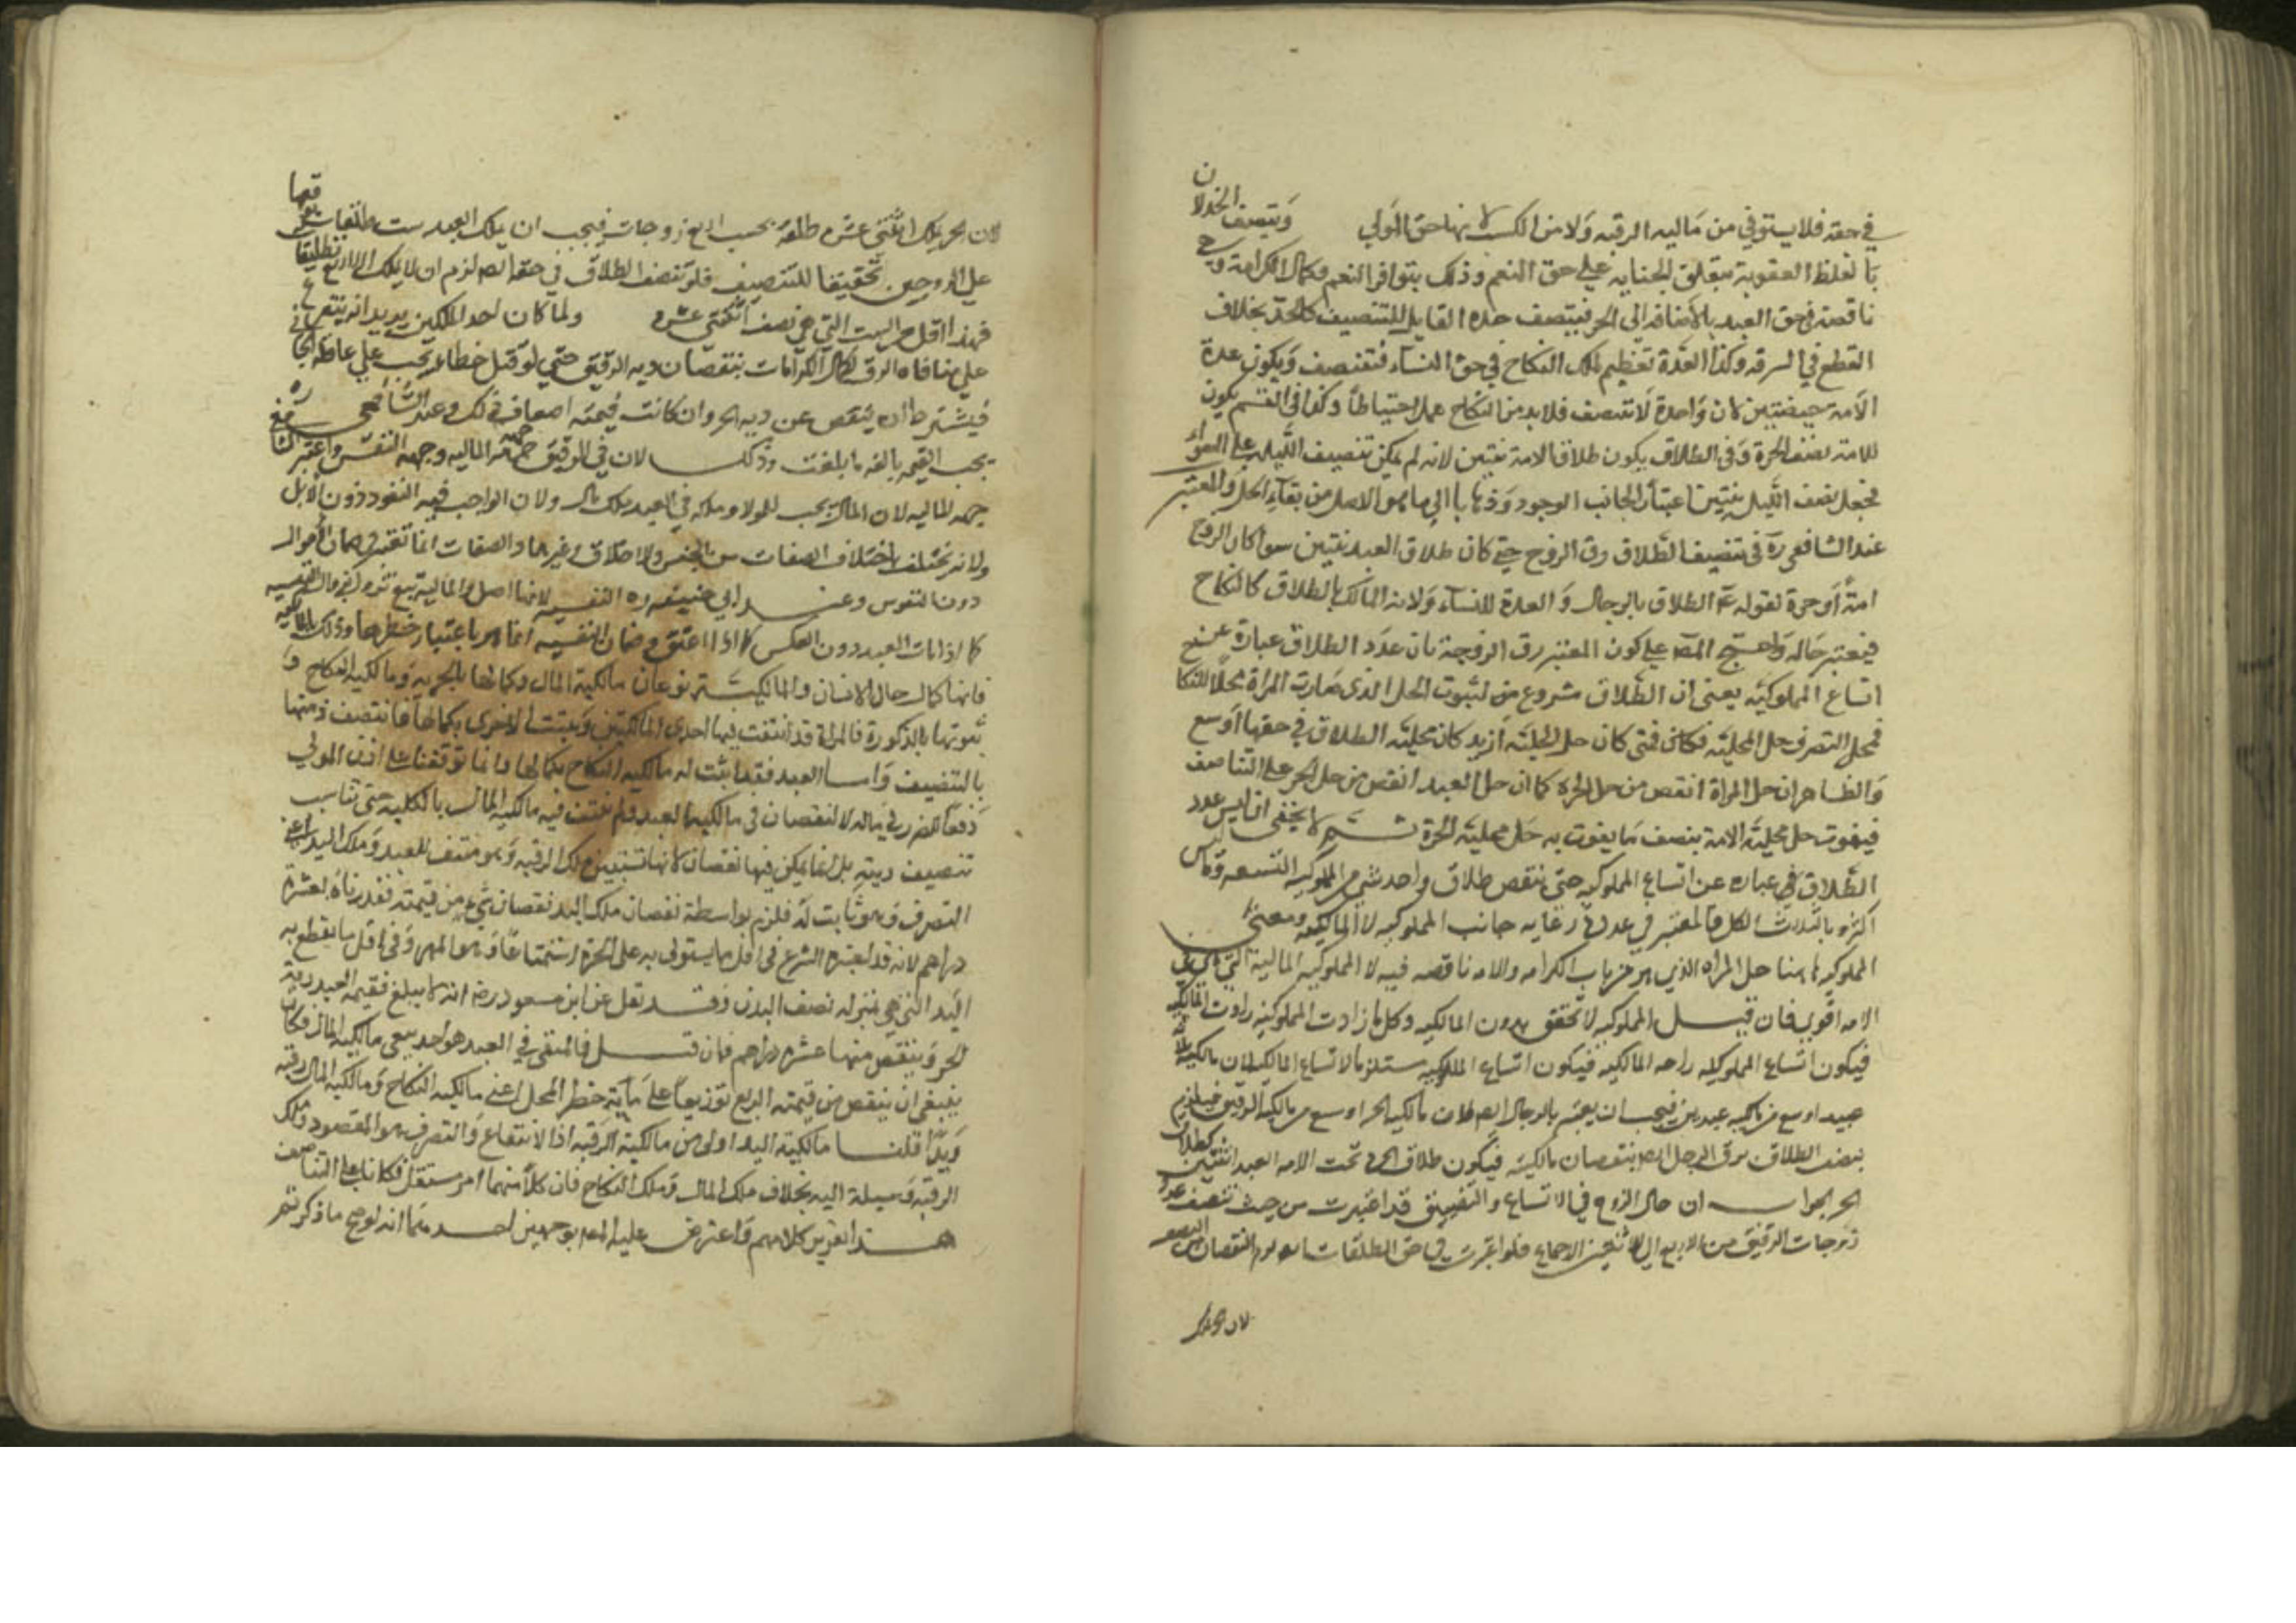 في حقه فلا يستوفي من ماليه الرقبه ولا من الكسب لانها حق المولي ويتصف
با لغلظ العقوبة بتغلق الجنايه علي حق النعم وذلك بتوافر النعم وكمال الكرامة
ناقصة في حق العبد بالاضافه الي الحر فيتصف حده القابل للتنصيف كالحد بخلاف
القطع في السرقه وكذا العدة تعظيم لملك النكاح في حق النسآء فتنصف ويكون عدة
الامة حيضتين لان واحدة لا تتنصف فلا بد من التكامل عملا احتياطا وكذا في القسم يكون
للامة نصف الحرة وفي الطلاق يكون طلاق الامة ثنتين لانه لم يمكن تنصيف
فجعل نصف ثنتين اعتبارا لجانب الوجود وذهابا الي ما هو الاصل من بقآء الحل والمعتبر
عند الشافعي ره في تنصيف الطلاق رق الزوج حتي كان طلاق العبد ثنتين سوا كان الزوج
امة أو حرة لقوله عم الطلاق بالرجال والعدة للنسآء ولانه المالك بالطلاق كالنكاح
فيعتبر حاله واحتج المص علي كون المعتبر رق الزوجة بان عدد الطلاق عبارة عن
اتساع المملوكيه يعني ان الطلاق مشروع من لثبوت الحل الذي صارت المراة محلا للنكا
فمحل التصرف حل المحلية فكان فمتي كان حل المحلية ازيد كان محلية الطلاق في حقها اوسع
والظاهر ان حل المراة انقص من حل الحرة كما ان حل العبد انقص من حل الحر علي التناصف
فيفوت حل محلية الامة بنصف ما يفوت به حل محلية الحرة ثم لا يخفي ان ليس عدد
الطلاق في عباره عن اتساع المملوكيه حتي ينقص طلاق واحد المملوكيه
اكثره بالثلاث الكل فالمعتبر في رعايه جانب المملوكيه لا المالكيه ومعني
المملوكيه هنا حل المراه الذي هو من باب الكرامه والامه ناقصه فيه لا المملوكيه الماليه التي هي في
الامه اقوي فان قيل المملوكيه لا تتحقق بدون المالكيه وكل ما زادت المملوكيه زادت المالكيه
فيكون اتساع المملوكيه المالكيه فيكون اتساع المملوكيه مستلزما لاتساع المالكيه لان مالكيه
عبيد اوسع من مالكيه عبدين فيجب ان يعتبر بالرجال ايضا لان مالكيه الحر اوسع من مالكية الرقيق فيلزم
بنصف الطلاق برق الرجل ايضا بنقصان مالكيته فيكون طلاق الحر تحت الامه العبد اثنتين كطلاق
الحر الجواب ان حال الزوج في الاتساع والتضييق قد اعتبرت من حيث تنصف عدد
زوجات الرقيق من الاربع الي الاثنين بالاجماع فلو اعتبرت في حق الطلقات ايضا لزم النقصان
لان الحر يملك
لان الحر يملك اثنتي عشره طلقة بحسب اربع زوجات فيجب ان يملك العبد ست طلقات
علي الزوجين تحقيقا للتنصيف فلو تنصف الطلاق في حقه ايضا لزم ان لا يملك الا اربع تطليقا
فهذا اقل من الست التي هي نصف اثنتي عشره ولما كان احد الملكين
علي منافاه الرق لكمال الكرامات بنقصان ديه الرقيق حتي لو قتل خطا يجب علي عاقلة الجا
فيشترط ان ينقص عن ديه الحر وان كانت قيمته اضعاف ذلك وعند الشافعي
يجب القيمه بالغه ما بلغت وذلك لان في الرقيق جهة الماليه وجهه النفس واعتبر
جهه الماليه لان المال يجب للمولا وملكه في العبد ملك مال ولان الواجب فيه النقود دون الابل
ولانه يختلف باختلاف الصفات من الجنس والاخلاق وغيرها والصفات انما تعتبر في ضمان الاموال
دون النفوس وعند ابي حنيفه ره النفسيه لانها اصل والماليه تبع
كما اذا مات العبد دون العكس كما اذا اعتق وضمان النفسيه انما هو باعتبار خطرها وذلك بالمالكيه
فانها كمال حال الانسان والمالكيه نوعان مالكية المال وكمالها بالحريه ومالكية النكاح و
ثبوتها بالذكورة فالمراة قد انتفت فيها احدي المالكيتين وبقيت لاخري بكمالها فانتصف ديتها
بالتنصيف واما العبد فقد ثبت له مالكيه النكاح بكمالها وانما توقفت علي اذن المولي
دفعا للضرر في ماله لا لنقصان في مالكيه العبد ولم تنتف فيه مالكيه المال بالكليه حتي تناسب
تنصيف ديته بل انما تمكن فيها نقصان لانها تبتني بملك الرقبه وهو منتف للعبد وملك اليد اعني
التصرف وهو ثابت له فلزم بواسطة نقصان ملك اليد نقصان شئ من قيمته فقدرناه بعشره
دراهم لانه قد اعتبره الشرع في اقل ما يستولي به علي الحرة استمتاعا وهو المهر وفي اقل ما يقطع به
اليد التي هي بمنزله نصف البدن وقد نقل عن ابن مسعود رض انه لا يبلغ قيمه العبد دية
الحر وينقص منها عشره دراهم فان قيل فالمنتفي في العبد هو احد مالكيه المال فكان
ينبغي ان ينقص من قيمته الربع توزيعا علي ماية خطر المحل اعني مالكيه النكاح ومالكيه المال رقبه
ويدا قلنا مالكية اليد اولي من مالكية الرقبه اذ الانتفاع والتصرف هو المقصود وملك
الرقبه وسيلة اليه بخلاف ملك المال وملك النكاح فان كلا منهما امر مستقل فكانا علي التناصف
هذا تقرير كلامهم واعترض عليه المص بوجهين احدهما انه لو صح ما ذكرتم